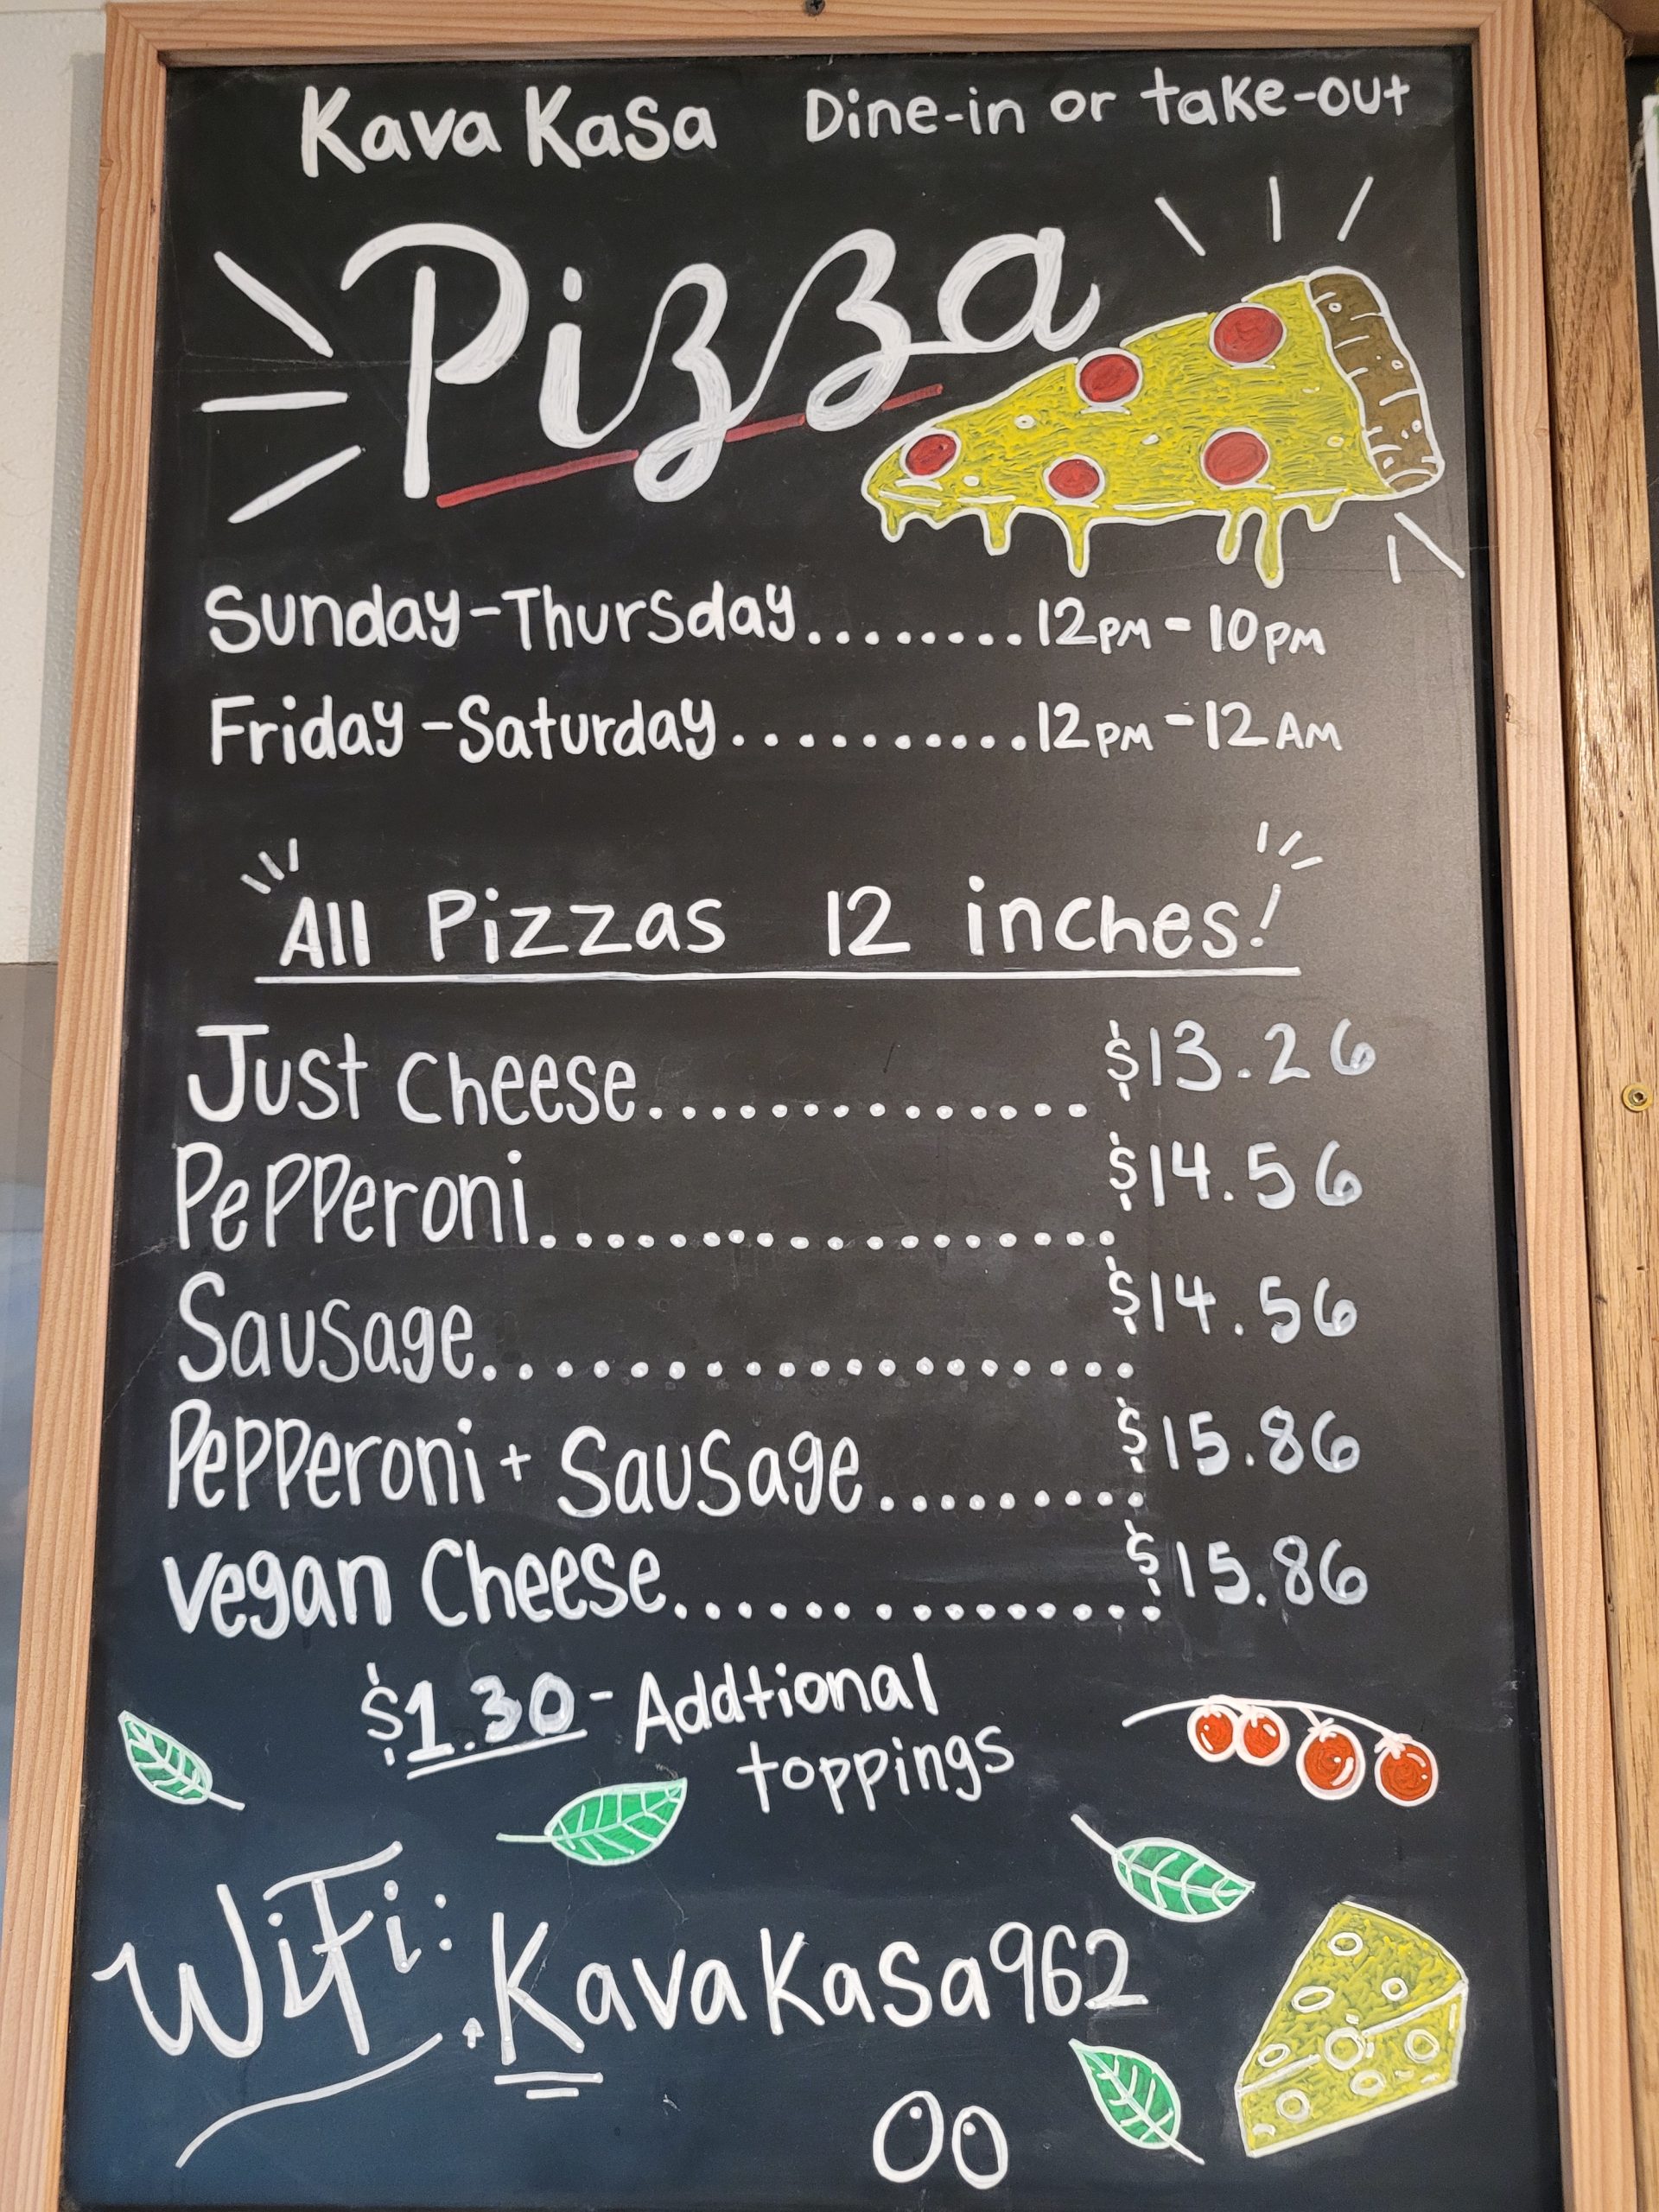 Kava Kasa Dine-in or take-out
Pizza
Sunday-Thursday........12PM-10PM
Friday-Saturday..........12PM-12AM
All Pizzas 12 inches!
Just Cheese.............. $13.26
Pepperoni.................. $14.56
Sausage.................... $14.56
Pepperoni + Sausage......... $15.86
vegan Cheese................ $15.86
$1.30 - Addtional
toppings
WiFi: KavaKasa962